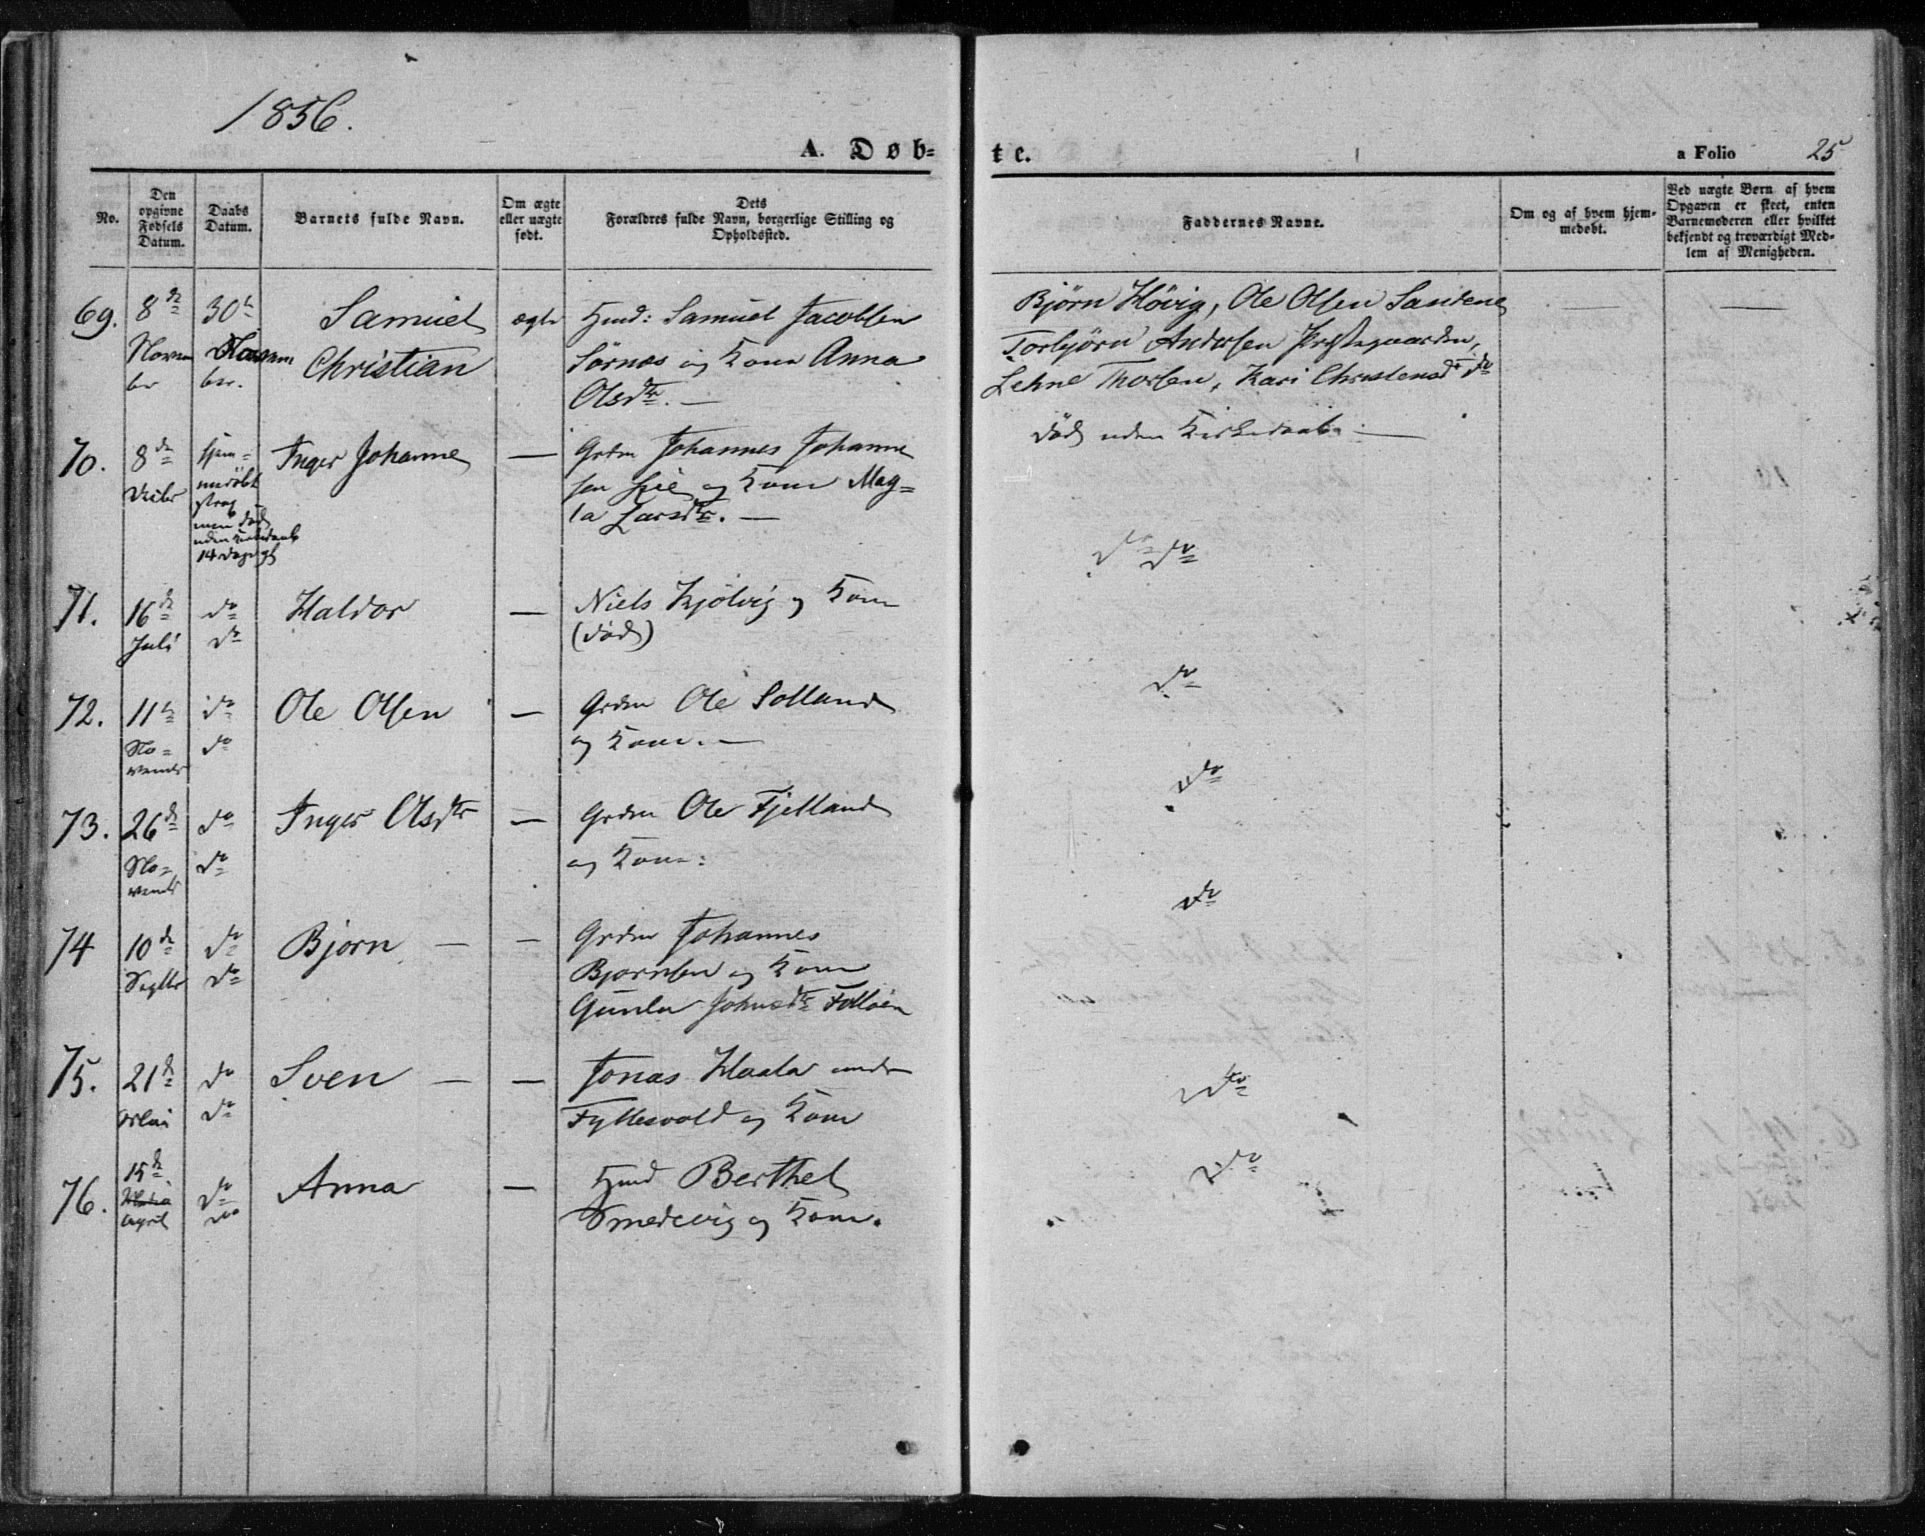 1856.
A. Døb=
te.
a Folio 25
No.
Den opgivne Fødsels Datum.
Daabs Datum.
Barnets fulde Navn.
Om ægte eller uægte født.
Dets Forældres fulde Navn, borgerlige Stilling og Opholdssted.
Faddernes Navne.
Om og af hvem hjemmedøbt.
Ved uægte Børn af hvem Opgaven er skeet, enten Barnemoderen eller hvilket bekjendt og troværdigt Medlem af Menigheden.
69. 8de Novem
ber
30te
ber.
Samuel
Christian
ægte
Huusd: Samuel Jacobsen
Sörnæs og Kone Anna
Olsdtr. —
Björn Hövig, Ole Olsen Sandene
Torbjörn Andersen Præstegaarden,
Lehne Thorsen, Kari Christensdtr do
70. 8de
Decbr
hjem=
medöbt
strax
men död
uden Kirkedaab
14 Dage gl
Inger Johanne
—
Grdm Johannes Johanne
sen Lie og Kone Mag=
la Larsdtr. —
död uden Kirkedaab —
71. 16de
Juli
do
do
Haldor
—
Niels Kjölvig og Kone
(död)
do do
72. 11te
No=
vembr
do
do
Ole Olsen
—
Grdm Ole Solland
og Kone. —
do
73. 26de
No=
vembr
do
do
Inger Olsdtr
—
Grdm Ole Fjelland
og Kone:
do
74 10de
Septbr
do
do
Bjørn — —
Grdm Johannes
Bjørnsen og Kone
Gunla Johnsdtr
do
75. 21de
do
do
Sven — —
Jonas Haala under
Fyllesvold og Kone
do
76. 15de
April
do
do
Anna
—
Huusd Berthel
Smedevig og Kone.
do